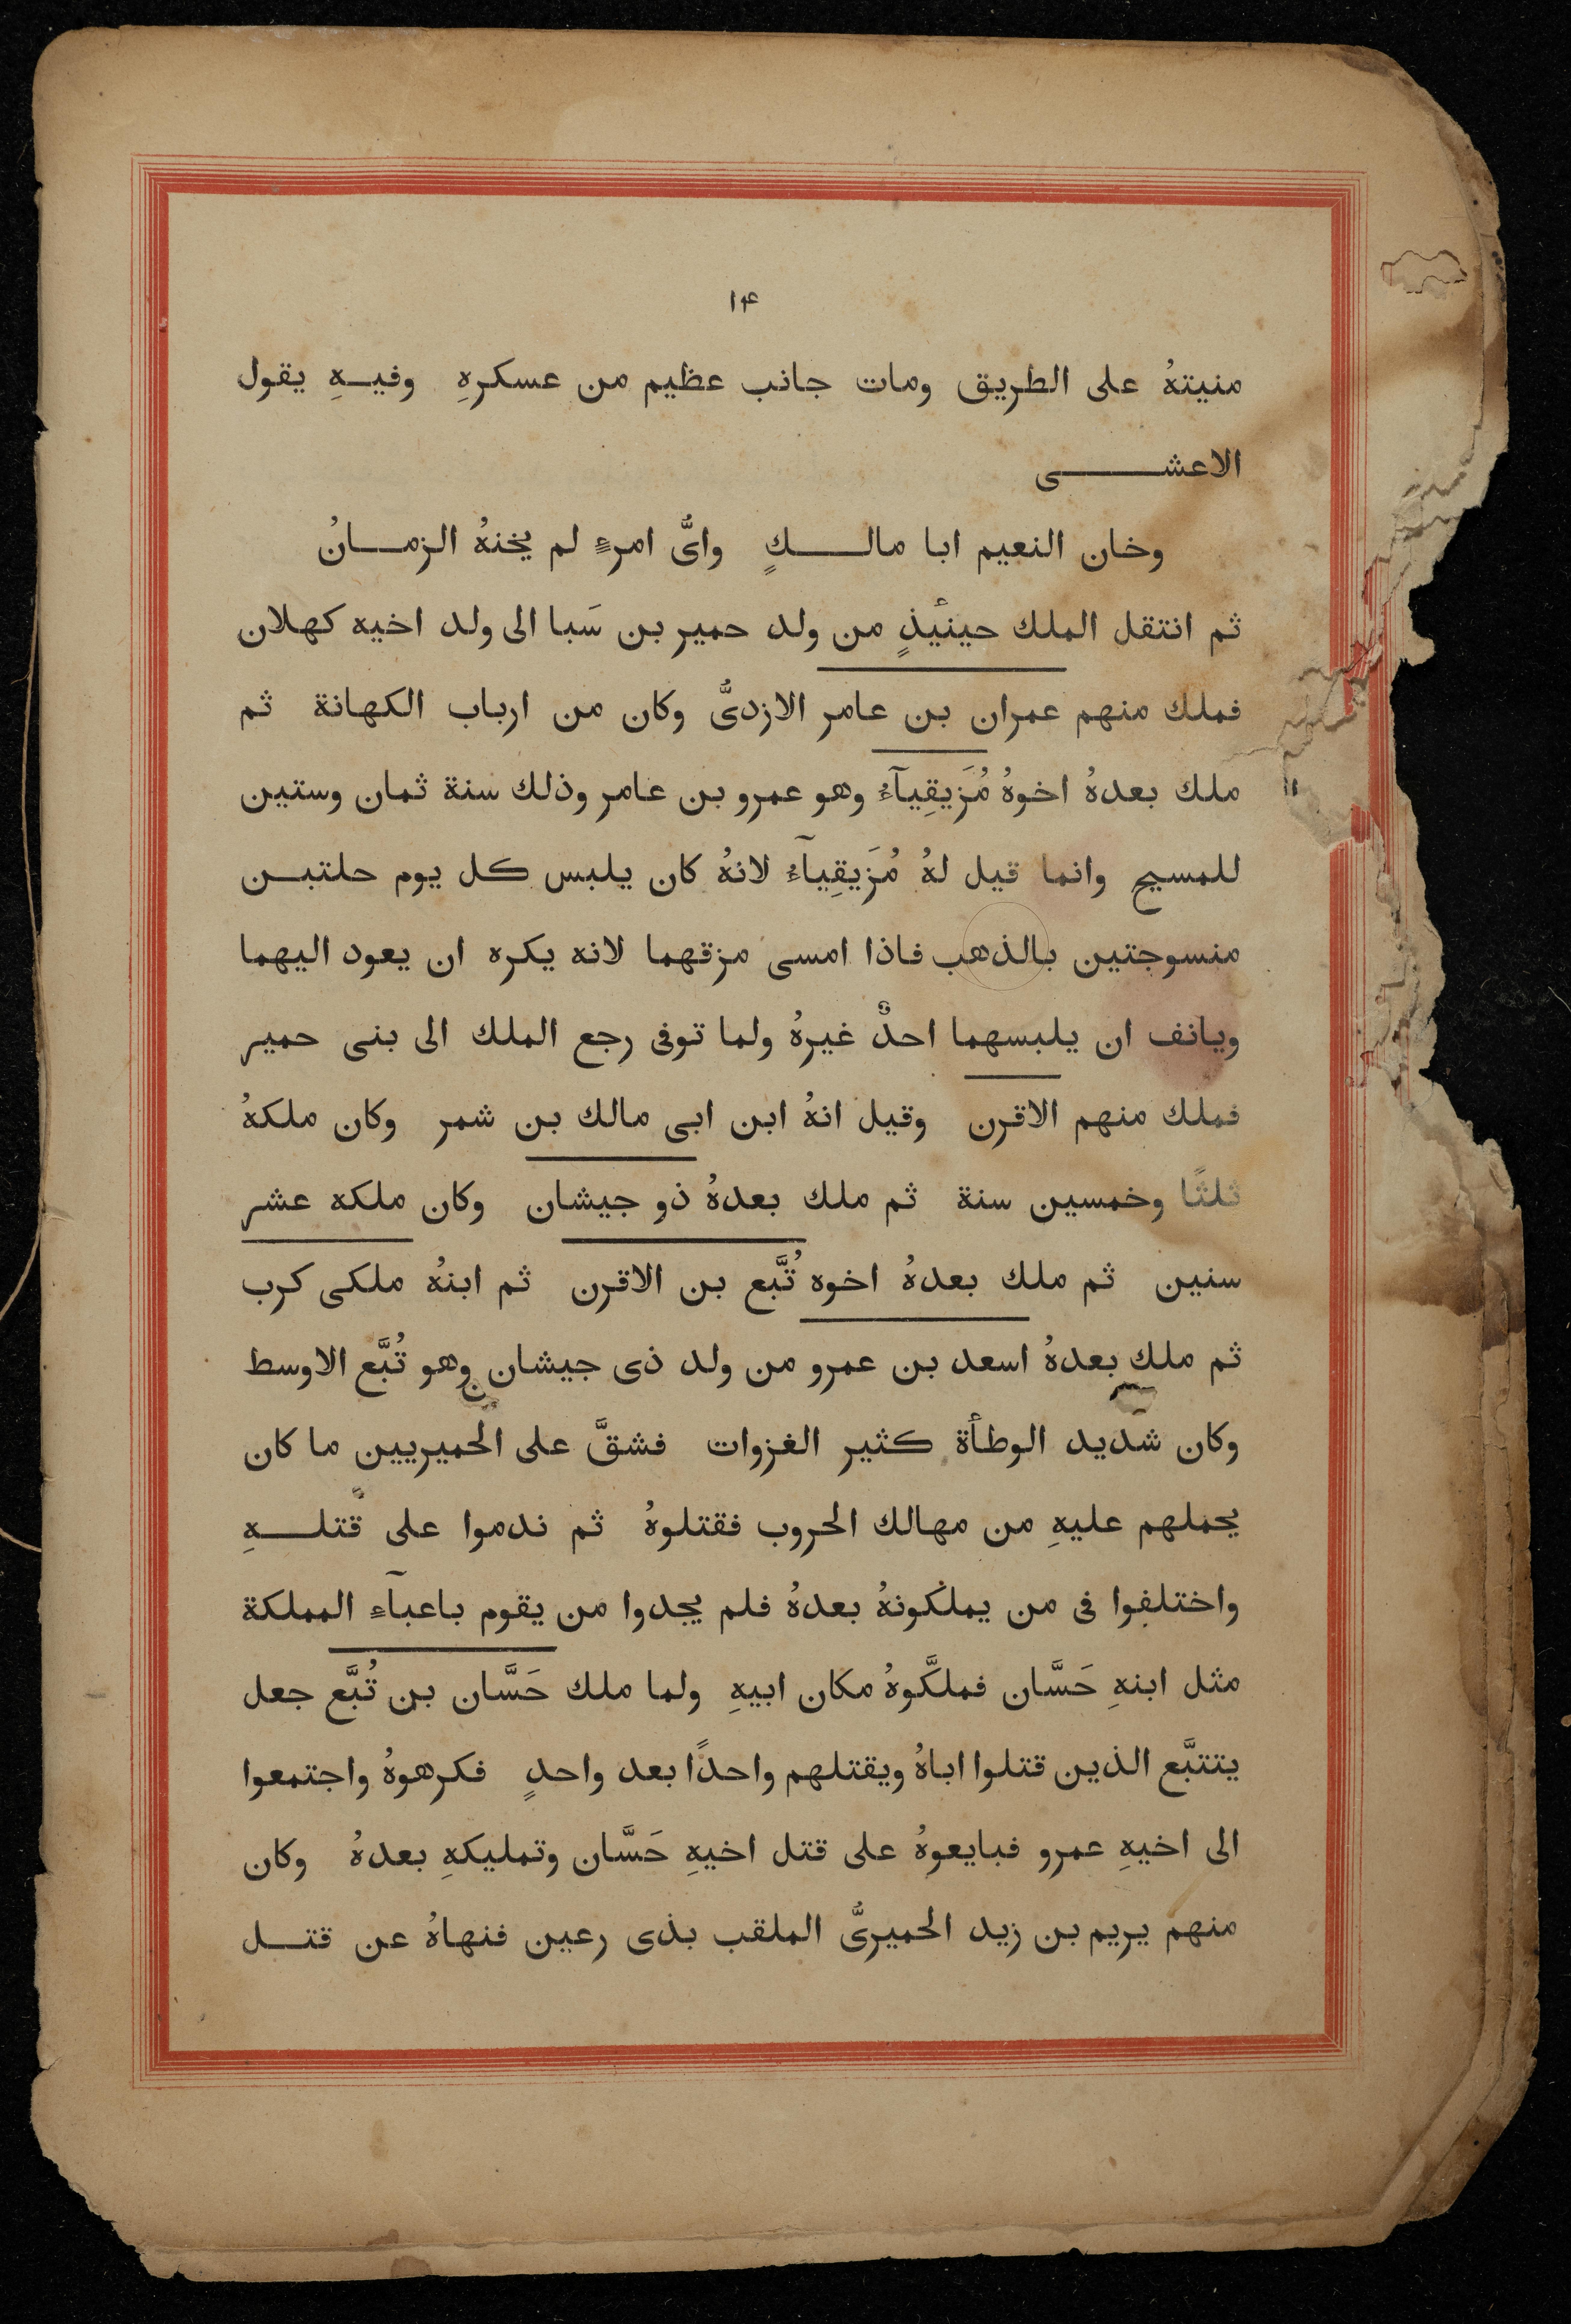 ١٤
منيتهُ على الطريق ومات جانب عظيم من عسكرهِ وفيـهِ يقول
الاعشـــى
وخان النعيم ابا مالــكٍ وايُّ امرءٍ لم يخنهُ الزمــانُ
ثم انتقل الملك حينئِذٍ من ولد حمير بن سَبا الى ولد اخيه كهلان
فملك منهم عمران بن عامر الازديُّ وكان من ارباب الكهانة ثم
ملك بعدهُ اخوهُ مُزَيقِيآءُ وهو عمرو بن عامر وذلك سنة ثمان وستين
للمسيح وانما قيل لهُ مُزَيقِيآءُ لانهُ كان يلبس كل يوم حلتيـن
منسوجتين بالذهب فاذا امسى مزقهما لانه يكره ان يعود اليهما
ويانف ان يلبسهما احدٌ غيرهُ ولما توفى رجع الملك الى بنى حمير
فملك منهم الاقرن وقيل انهُ ابن ابى مالك بن شمر وكان ملكهُ
ثلثًا وخمسين سنة ثم ملك بعدهُ ذو جيشان وكان ملكه عشر
سنين ثم ملك بعدهُ اخوه تُبَّع بن الاقرن ثم ابنهُ ملكى كرب
ثم ملك بعدهُ اسعد بن عمرو من ولد ذى جيشان وهو تُبَّع الاوسط
وكان شديد الوطأة كثير الغزوات فشقَّ على الحميريين ما كان
يحملهم عليهِ من مهالك الحروب فقتلوهُ ثم ندموا على قتلــهِ
واختلفوا فى من يملكونهُ بعدهُ فلم يجدوا من يقوم باعبآءِ المملكة
مثل ابنهِ حَسَّان فملكَّوهُ مكان ابيهِ ولما ملك حَسَّان بن تُبَّع جعل
يتتبَّع الذين قتلوا اباهُ ويقتلهم واحدًا بعد واحدٍ فكرهوهُ واجتمعوا
الى اخيهِ عمرو فبايعوهُ على قتل اخيهِ حَسَّان وتمليكهِ بعدهُ وكان
منهم يريم بن زيد الحميريُّ الملقب بذى رعين فنهاهُ عن قتــل